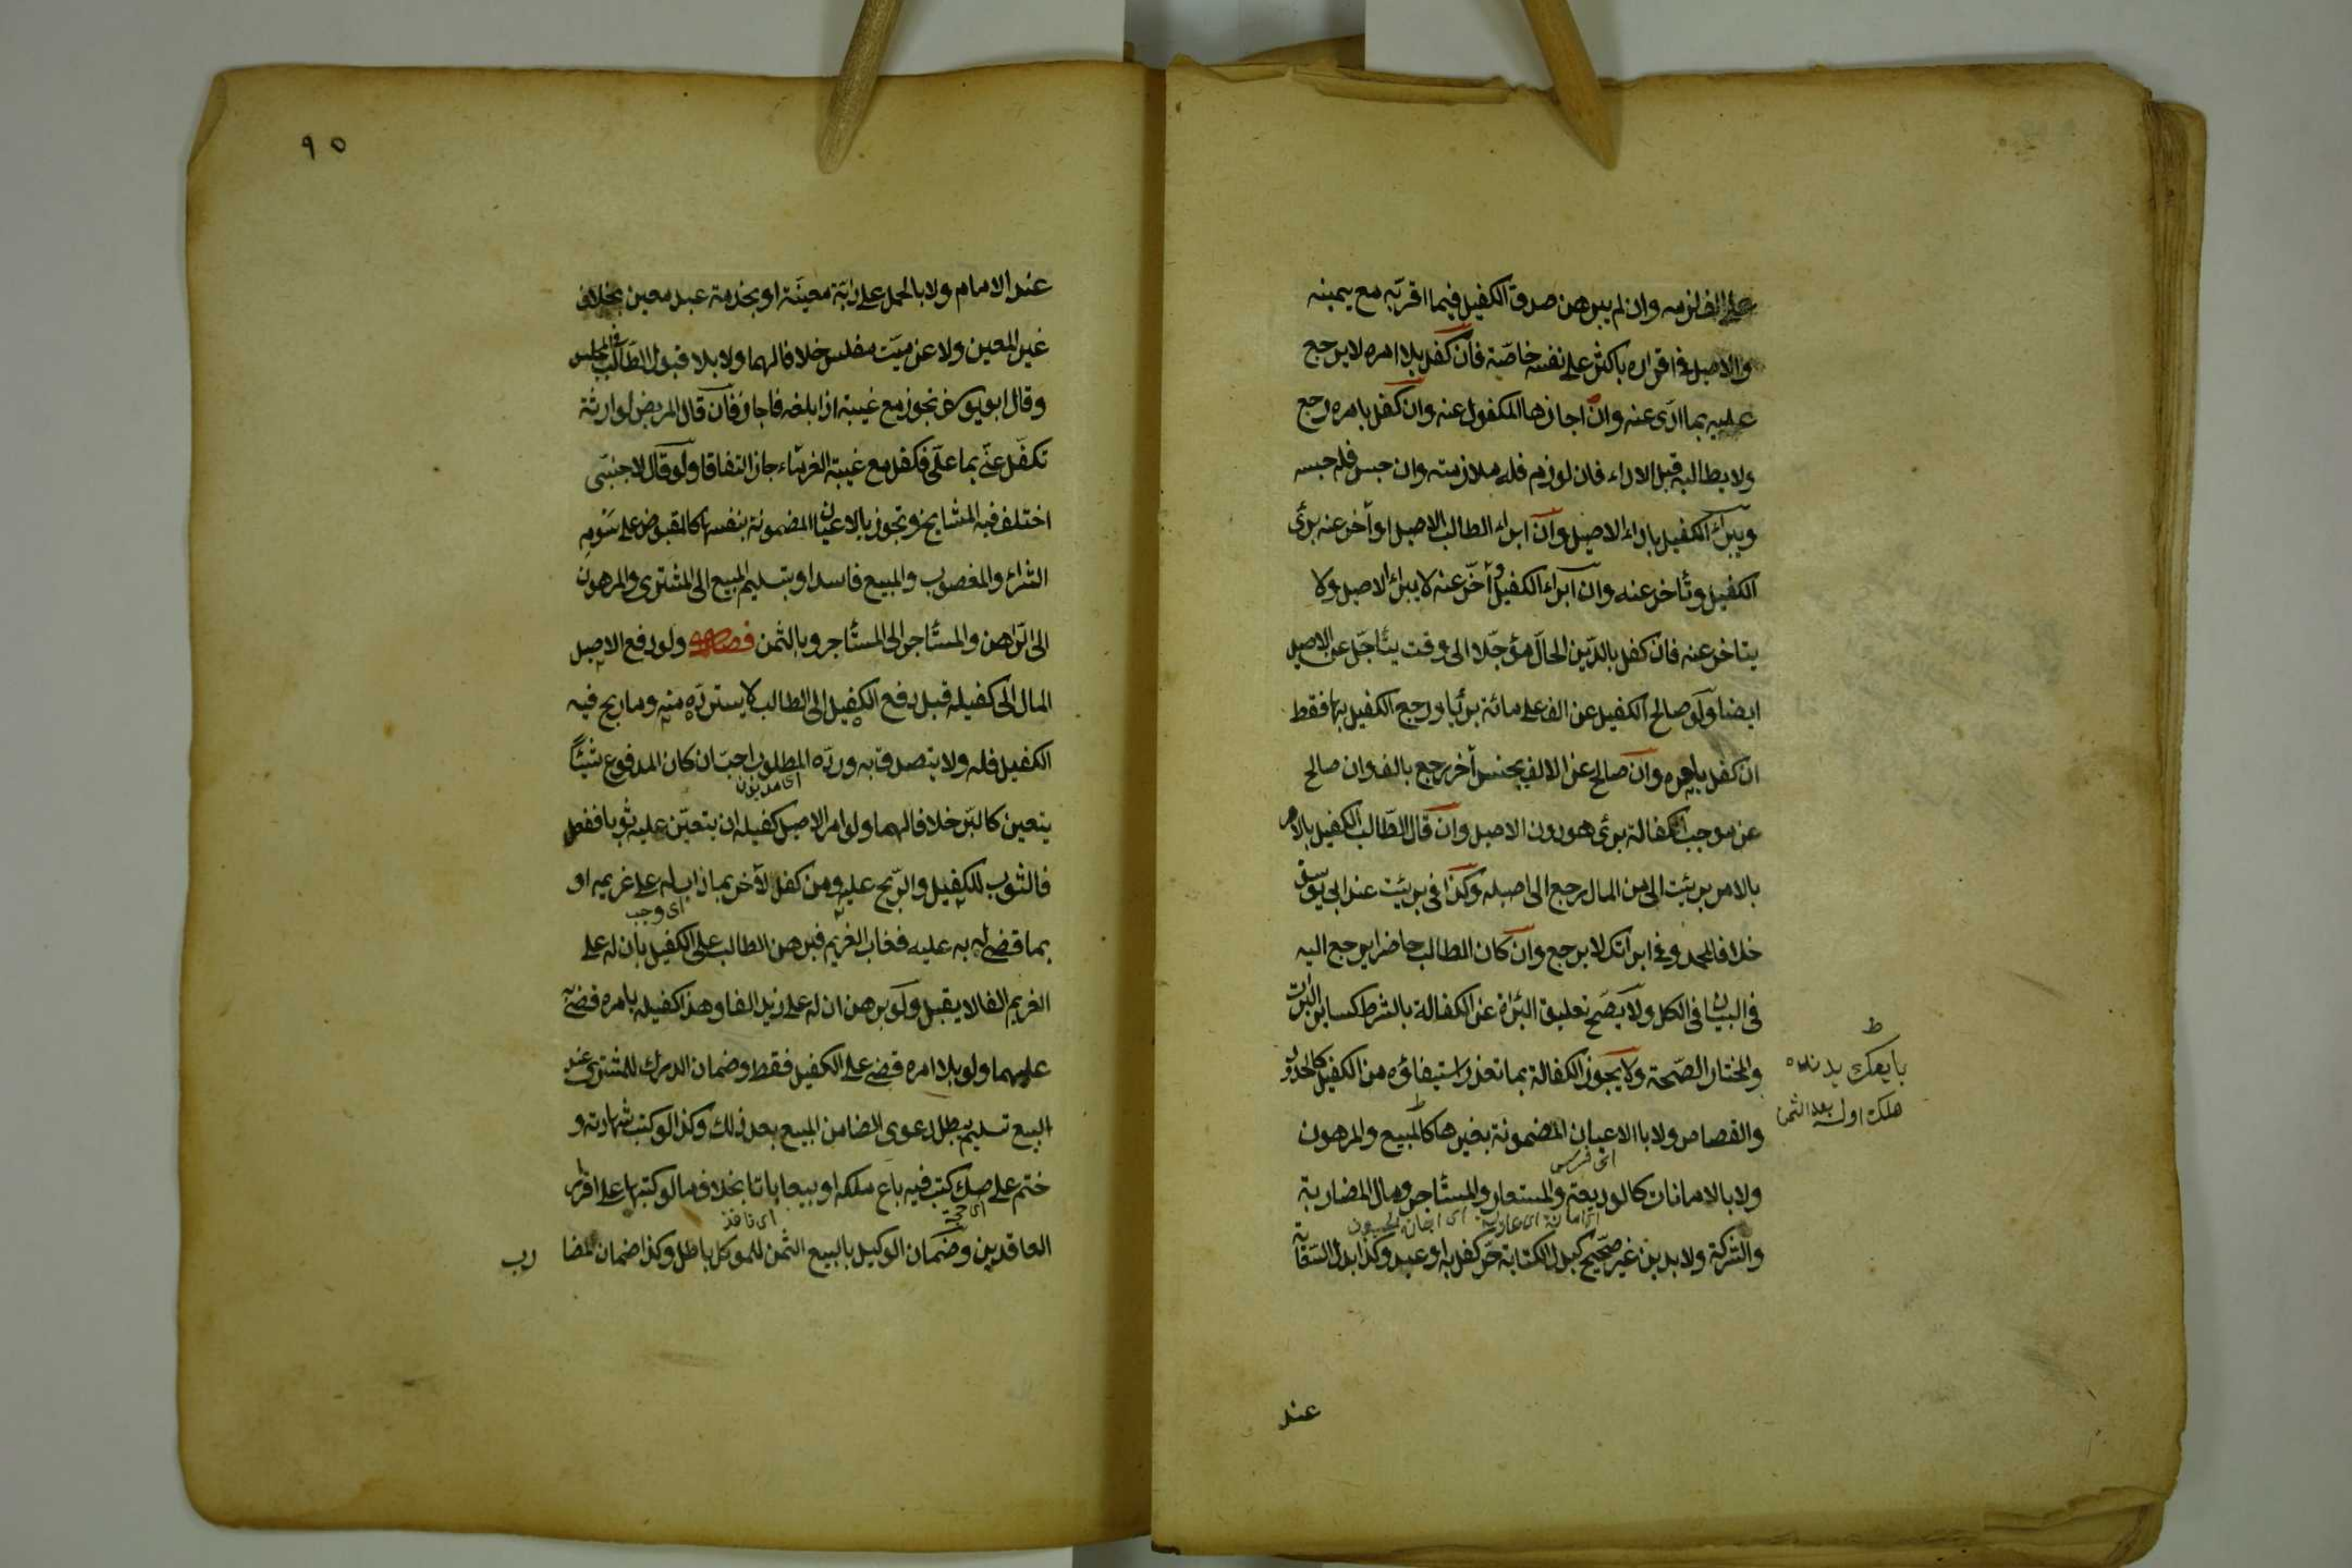 على الف لزمه وان لم يبرهن صدق الكفيل فيما اقر به مع يمينه
والاصيل في اقراره باكثر على نفسه خاصة فان كفل بلا امره لا يرجع
عليه بما ادى عنه وان اجازها المكفول عنه وان كفل بامره رجع
ولا يطالبه قبل الاداء فان لوزم فله ملازمته وان حبس فله حبسه
ويبرأ الكفيل باداء الاصيل وان ابراء الطالب الاصيل او أخر عنه برئ
الكفيل وتأخر عنه وان ابراء الكفيل او أخّر عنه لا يبراء الاصيل ولا
يتاخر عنه فان كفل بالدّين الحالّ مؤجّلا الى وقت يتأجّل عن الاصيل
ايضا ولو صالح الكفيل عن الف على مائة برئا ورجع الكفيل بها فقط
ان كفل بامره وان صالح عن الالف بجنس أخر رجع بالف وان صالح
عن موجب الكفالة برئ هو دون الاصيل وان قال الطّالب للكفيل بالامر
بالامر برئت الى من المال رجع الى اصيله وكذا في برئت عند ابي يوسف
خلافا لمحمد وفي ابراتك لا يرجع وان كان الطالب حاضرا يرجع اليه
في البيان في الكل ولا يصح تعليق البرأة عن الكفالة بالشرط كسائر البرات
والمختار الصّحة ولا يجوز الكفالة بما تعذر استيفاؤه من الكفيل كالحدود
والقصاص ولا باالاعيان المضمونة بغيرها كالمبيع والمرهون
ولا بالامانات كالوديعة والمستعار والمستأجر ومال المضاربة
والشركة ولا بدين غير صحيح كبدل الكتابة حرّ كفل به او عبد وكذا بدل السّعاية
عند
٩٥
عند الامام ولا بالحمل على دابّة معيّنة او بخدمة عبد معين بخلاف
غير المعين ولا عن ميّت مفلس خلافا لهما ولا بلا قبول الطّالب في المجلس
وقال ابو يوسف تجوز مع غيبته اذا بلغه فاجاز فان قال المريض لوارثه
تكفّل عنّي بما علّي فكفل مع غيبة الغرماء جاز اتفاقا ولو قال لاجنبّى
اختلف فيه المشايخ وتجوز بالاعيان المضمونة بنفسها كالمقبوض على سَومِ
الشراء والمغصوب والمبيع فاسدا وبتسليم المبيع الى المشترى والمرهون
الى الرّاهن والمستأجر الى المستأجر وبالثمن فصل ولو دفع الاصيل
المال الى كفيله قبل دفع الكفيل الى الطالب لا يستردّه منه وما ربح فيه
الكفيل فله ولا يتصدق به وردّه المطلوب احبّ ان كان المدفوع شيئًا
اى مديون
يتعين كالبرّ خلافا لهما ولو امر الاصيل كفيله ان يتعيّن عليه ثوبا ففعل
فالثوب للكفيل والرّبح عليه ومن كفل لآخر بما ذاب له على غريمه او
اى وجب
بما قضى له به عليه فغاب الغريم فبرهن الطالب على الكفيل بأن له على
الغريم الفا لا يقبل ولو برهن ان له على زيد الفا وهذا كفيله بامره قضى به
عليهما ولو بلا امره قضى على الكفيل فقط وضمان الدرك للمشترى عند
البيع تسليم يبطل دعوى الضامن المبيع بعد ذلك وكذا لو كتب شهادته و
ختم على صك كتب فيه باع ملكه او بيعا باتا بخلاف ما لو كتبها على اقرار
اى نافذ
العاقدين وضمان الوكيل بالبيع الثمن للموكل باطل وكذا ضمان المضا
رب